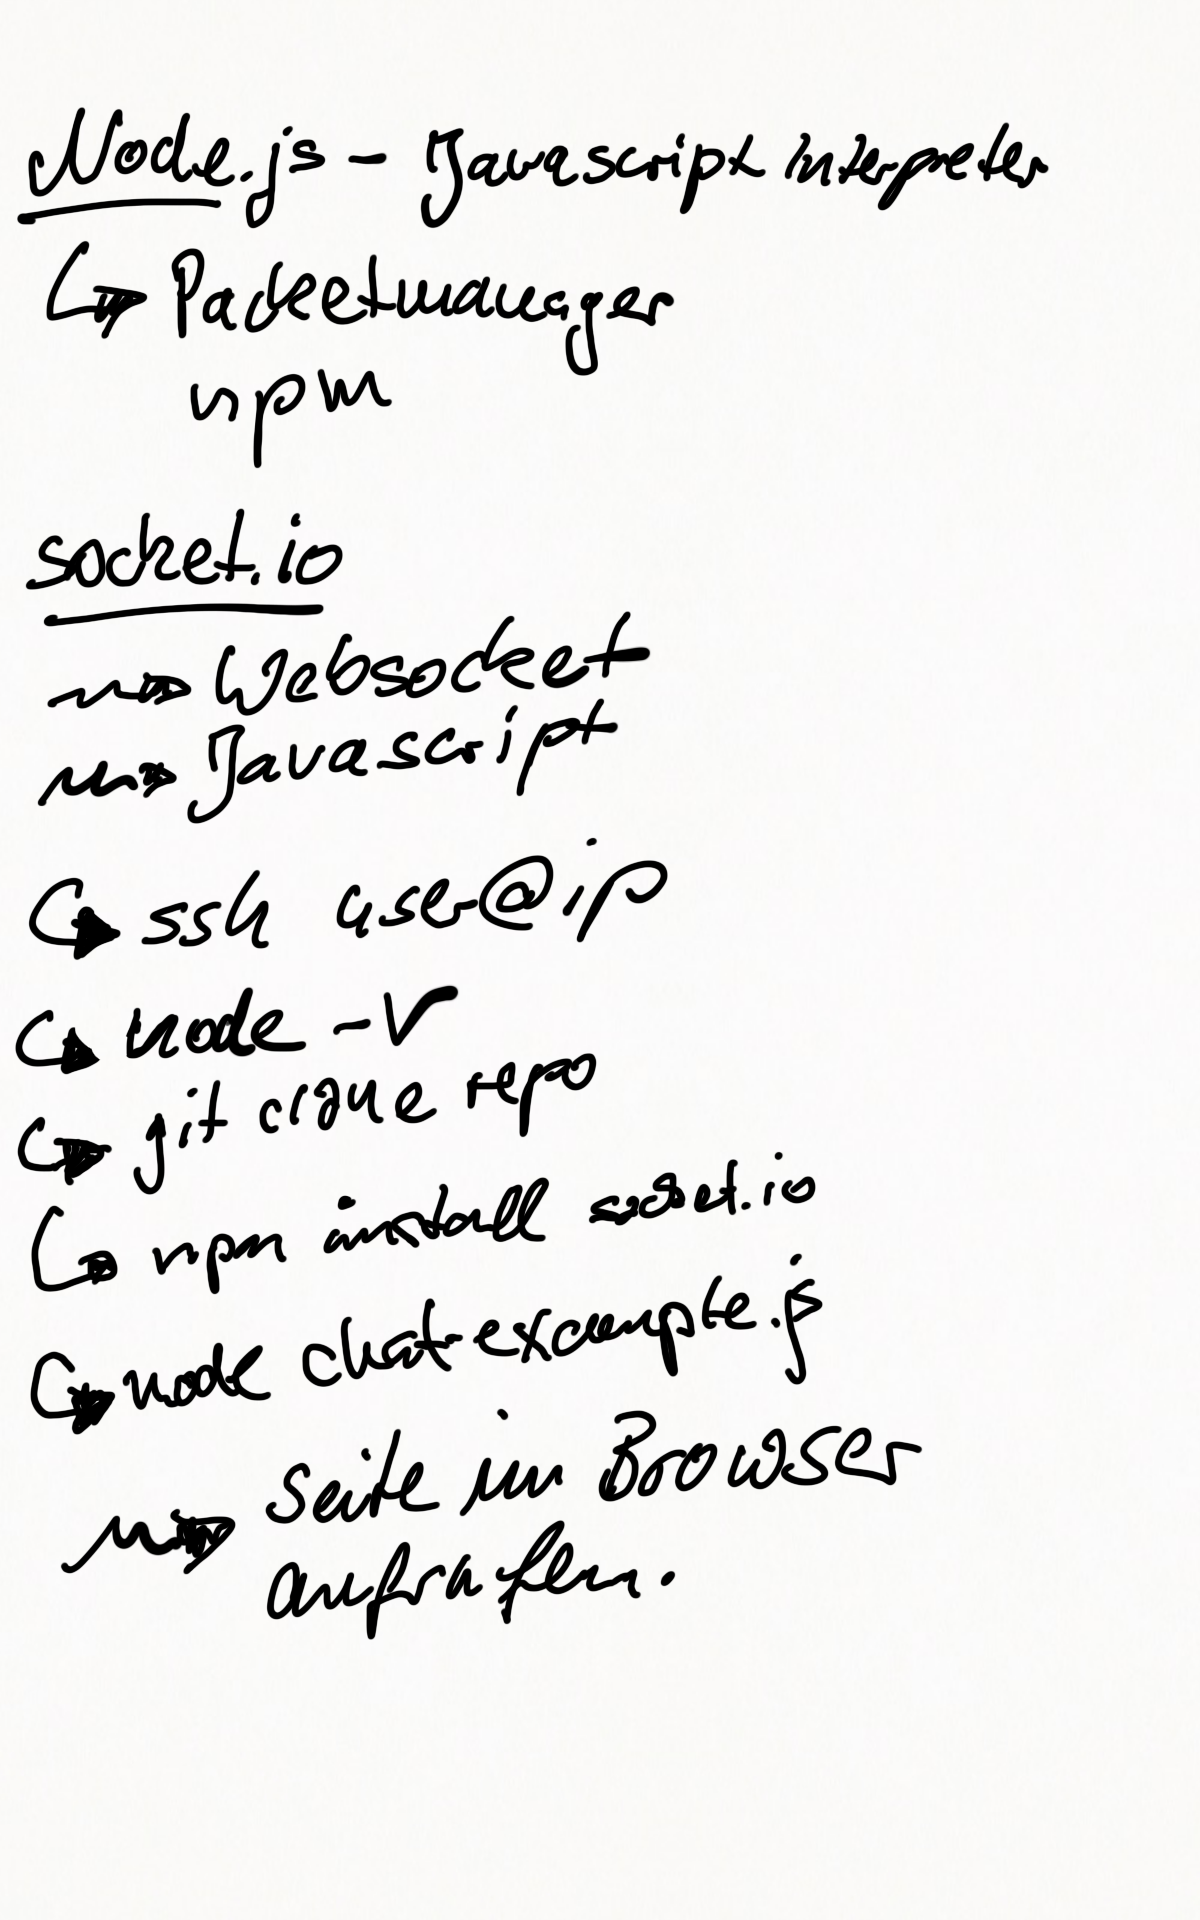 Node.js - Javascript interpreter
Packetmanager
npm
socket.io
Websocket
Javascript
ssh user@ip
node -v
git clone repo
npm install socket.io
node chat-example.js
Seite im Browser
aufrufen.